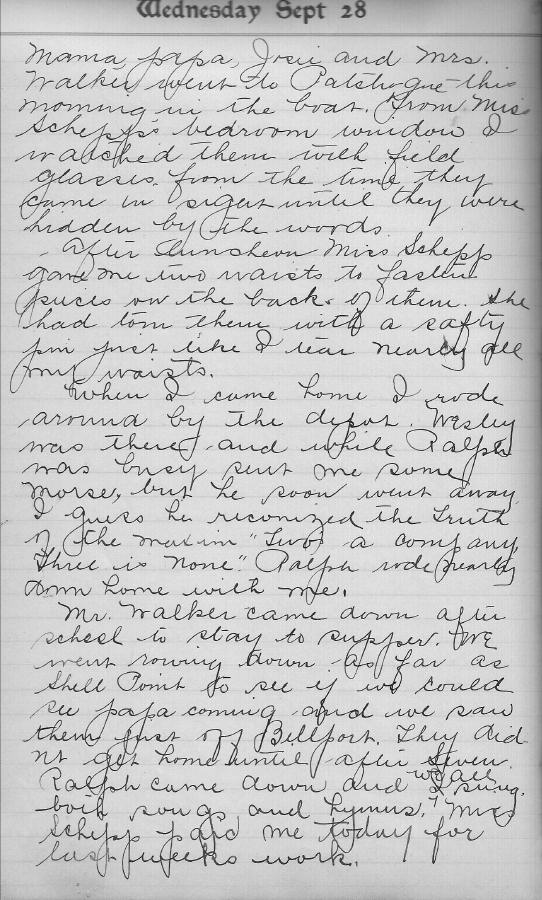 Wednesday Sept 28
Mama, papa, Josie and Mrs.
Walker went to Patchogue this
morning in the boat. From Miss
Schepp's bedroom window I
watched them with field
glasses from the time they
came in sight until they were
hidden by the woods.
After luncheon Miss Schepp
gave me two waists to fasten
pieces on the backs of them. She
had torn them with a safty
pin just like I tear nearly all
my waists.
When I came home I rode
around by the depot. Wesley
was there and while Ralph
was busy sent me some
Morse, but he soon went away.
I guess he reconized the truth
of the maxim "Two's a company,
three is none". Ralph rode nearly
down home with me.
Mr. Walker came down after
school to stay to supper. We
went rowing down as far as
Shell Point to see if we could
see papa coming and we saw
them just off Bellport. They did
nt get home until after seven.
Ralph came down and we all sung.
both songs and hymns. Miss
Schepp paid me today for
last weeks work.